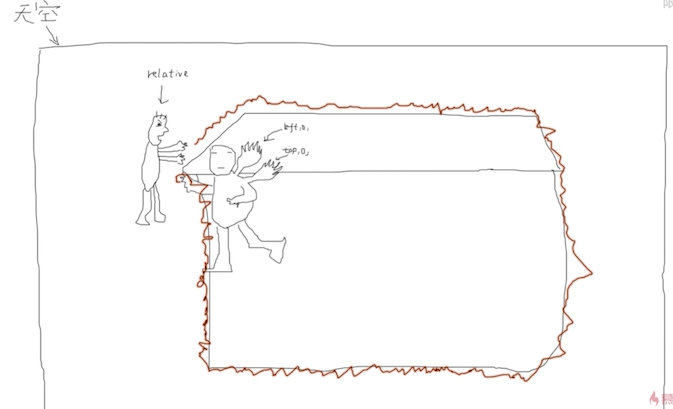 天空
PD
relative
left:0;
top:0;